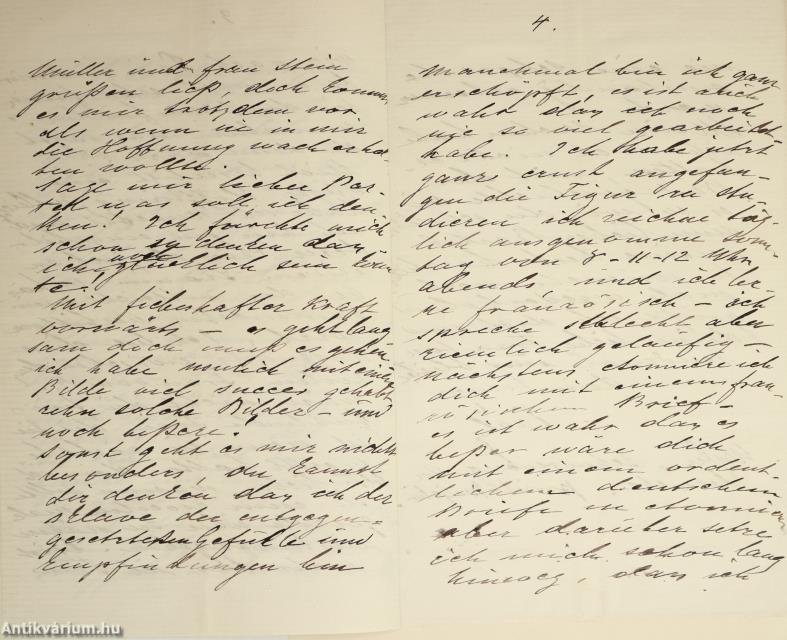 Müller und frau Stein
grüßen ließ, doch kommt
es mir trotzdem vor
als wenn sie in mir
die Hoffnung wach erhal-
ten wollte.
Sage mir lieber
was soll ich den-
ken! Ich fürchte mich
schon zu denken daß
ich glücklich sein könn-
te!
Mit fieberhafter Kraft
vorwärts – es geht lang
sam doch muß es gehen
ich habe neulich mit einem
Bilde viel succes gehabt
zehn solche Bilder – und
noch beßere!
Sonst geht es mir nichts
besonders, du kannst
dir denken daß ich der
sclave der entgegen-
gesetzten Gefühle und
Empfindungen bin
4.
Manchmal bin ich ganz
erschöpft, es ist auch
wahr daß ich noch
nie so viel gearbeitet
habe. Ich habe jetzt
ganz ernst angefan-
gen die Figur zu stu-
dieren ich zeichne täg-
lich ausgenomme Sonn-
tag von 8-11-12 Uhr
abends, und ich ler-
ne französisch – ich
spreche schlecht aber
ziemlich geläufig –
nächstens etonniere ich
dich mit einem fran-
zösischen Brief –
es ist wahr daß es
beßer wäre dich
mit einem ordent-
lichem deutschem
Briefe zu etonnieren
aber darüber setze
ich mich schon lang
hinweg, daß ich
Antikvárium.hu